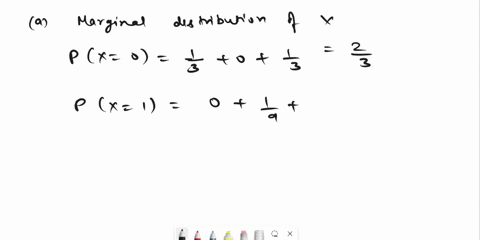 (a) Marginal distribution of X
P(x = 0) = 1/3 + 0 + 1/3 = 2/3
P(x = 1) = 0 + 1/9 +